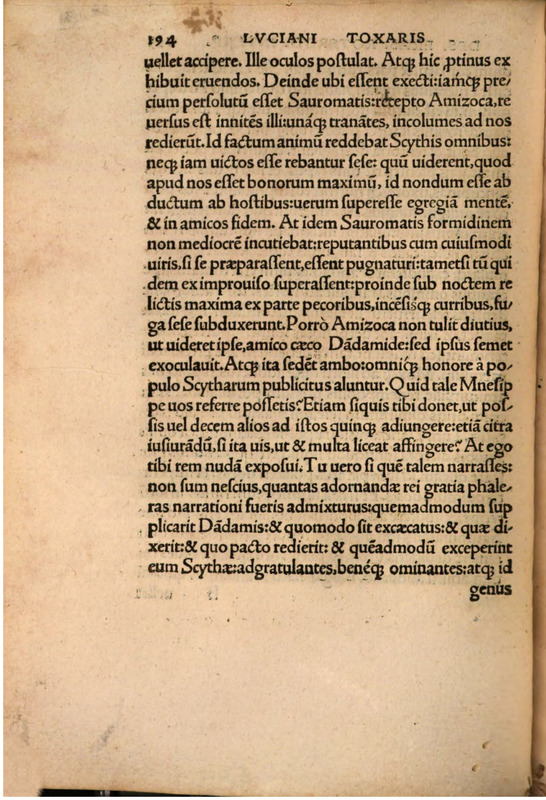 194 LVCIANI TOXARIS
uellet accipere. Ille oculos postulat. Atqꝫ hic ꝓtinus ex
hibuit eruendos. Deinde ubi essent execti:iamqꝫ pre-
cium persolutū esset Sauromatis:recepto Amizoca,re
uersus est innitēs illi:unáqꝫ tranātes, incolumes ad nos
redierūt. Id factum animū reddebat Scythis omnibus:
neqꝫ iam uictos esse rebantur sese: quū uiderent,quod
apud nos esset bonorum maximū, id nondum esse ab
ductum ab hostibus:uerum superesse egregiā mentē,
& in amicos fidem. At idem Sauromatis formidinem
non mediocrē incutiebat:reputantibus cum cuiusmodi
uiris,si se præparassent,essent pugnaturi:tametsi tū qui
dem ex improuiso superassent:proinde sub noctem re
lictis maxima ex parte pecoribus,incēsisqꝫ curribus,fu-
ga sese subduxerunt. Porrò Amizoca non tulit diutius,
ut uideret ipse,amico cæco Dādamide:sed ipsus semet
exoculauit. Atqꝫ ita sedēt ambo:omniqꝫ honore à po-
pulo Scytharum publicitus aluntur. Quid tale Mnesip
pe uos referre possetis? Etiam siquis tibi donet,ut pos-
sis uel decem alios ad istos quinqꝫ adiungere:etiā citra
iusiurādū,si ita uis,ut & multa liceat affingere? At ego
tibi rem nudā exposui. Tu uero si quē talem narrasses:
non sum nescius,quantas adornandæ rei gratia phale-
ras narrationi fueris admixturus:quemadmodum sup
plicarit Dādamis:& quomodo sit excæcatus:& quæ di-
xerit:& quo pacto redierit: & quēadmodū exceperint
eum Scythæ:adgratulantes,benéqꝫ ominantes:atqꝫ id
genus